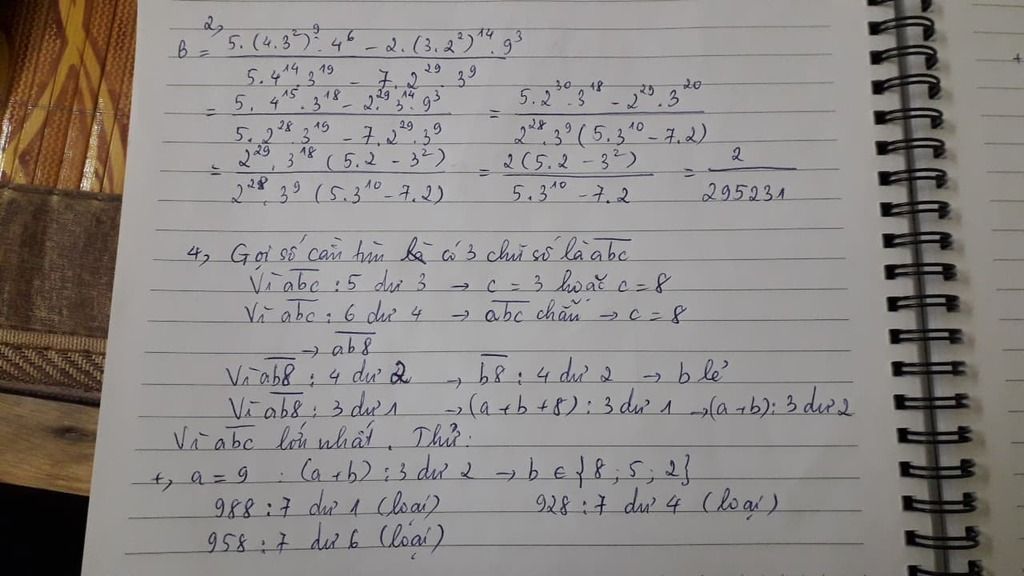 2,
B = \frac{5.(4.3^2)^9.4^6 - 2.(3.2^2)^{14}.9^3}{5.4^{14}3^{19} - 7.2^{29}.3^9}
= \frac{5.4^{15}.3^{18} - 2^{29}.3^{14}.9^3}{5.2^{28}.3^{19} - 7.2^{29}.3^9} = \frac{5.2^{30}.3^{18} - 2^{29}.3^{20}}{2^{28}.3^9(5.3^{10} - 7.2)}
= \frac{2^{29}.3^{18}(5.2 - 3^2)}{2^{28}.3^9(5.3^{10} - 7.2)} = \frac{2(5.2 - 3^2)}{5.3^{10} - 7.2} = \frac{2}{295231}
4, Gọi số cần tìm có 3 chữ số là \overline{abc}
Vì \overline{abc} : 5 dư 3 → c = 3 hoặc c = 8
Vì \overline{abc} : 6 dư 4 → \overline{abc} chẵn → c = 8
→ \overline{ab8}
Vì \overline{ab8} : 4 dư 2 → \overline{b8} : 4 dư 2 → b lẻ
Vì \overline{ab8} : 3 dư 1 → (a + b + 8) : 3 dư 1 → (a + b) : 3 dư 2
Vì \overline{abc} lớn nhất. Thử:
+, a = 9 : (a + b) : 3 dư 2 → b ∈ {8 ; 5 ; 2}
988 : 7 dư 1 (loại) 928 : 7 dư 4 (loại)
958 : 7 dư 6 (loại)